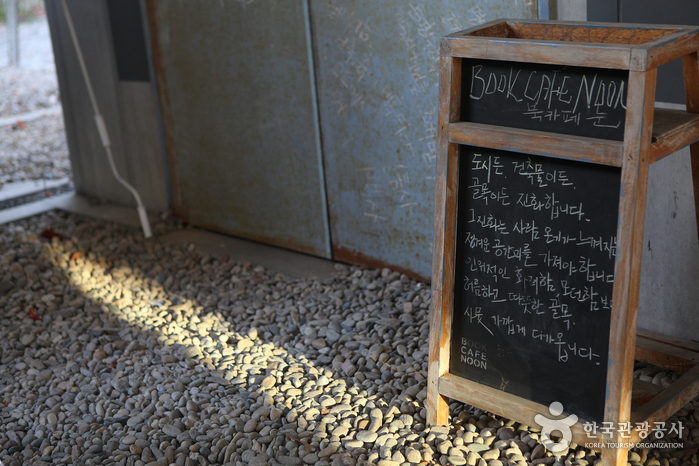 BOOK CAFE NOON
북카페 눈
도시든, 건축물이든,
골목이든 진화합니다.
그 진화는 사람의 온기가 느껴지는
정겨운 공간과를 가져야 합니다
인위적인 화려함, 모던함보다
허름하고 따뜻한 골목.
사뭇 가깝게 다가옵니다.
BOOK
CAFE
NOON
한국관광공사
KOREA TOURISM ORGANIZATION